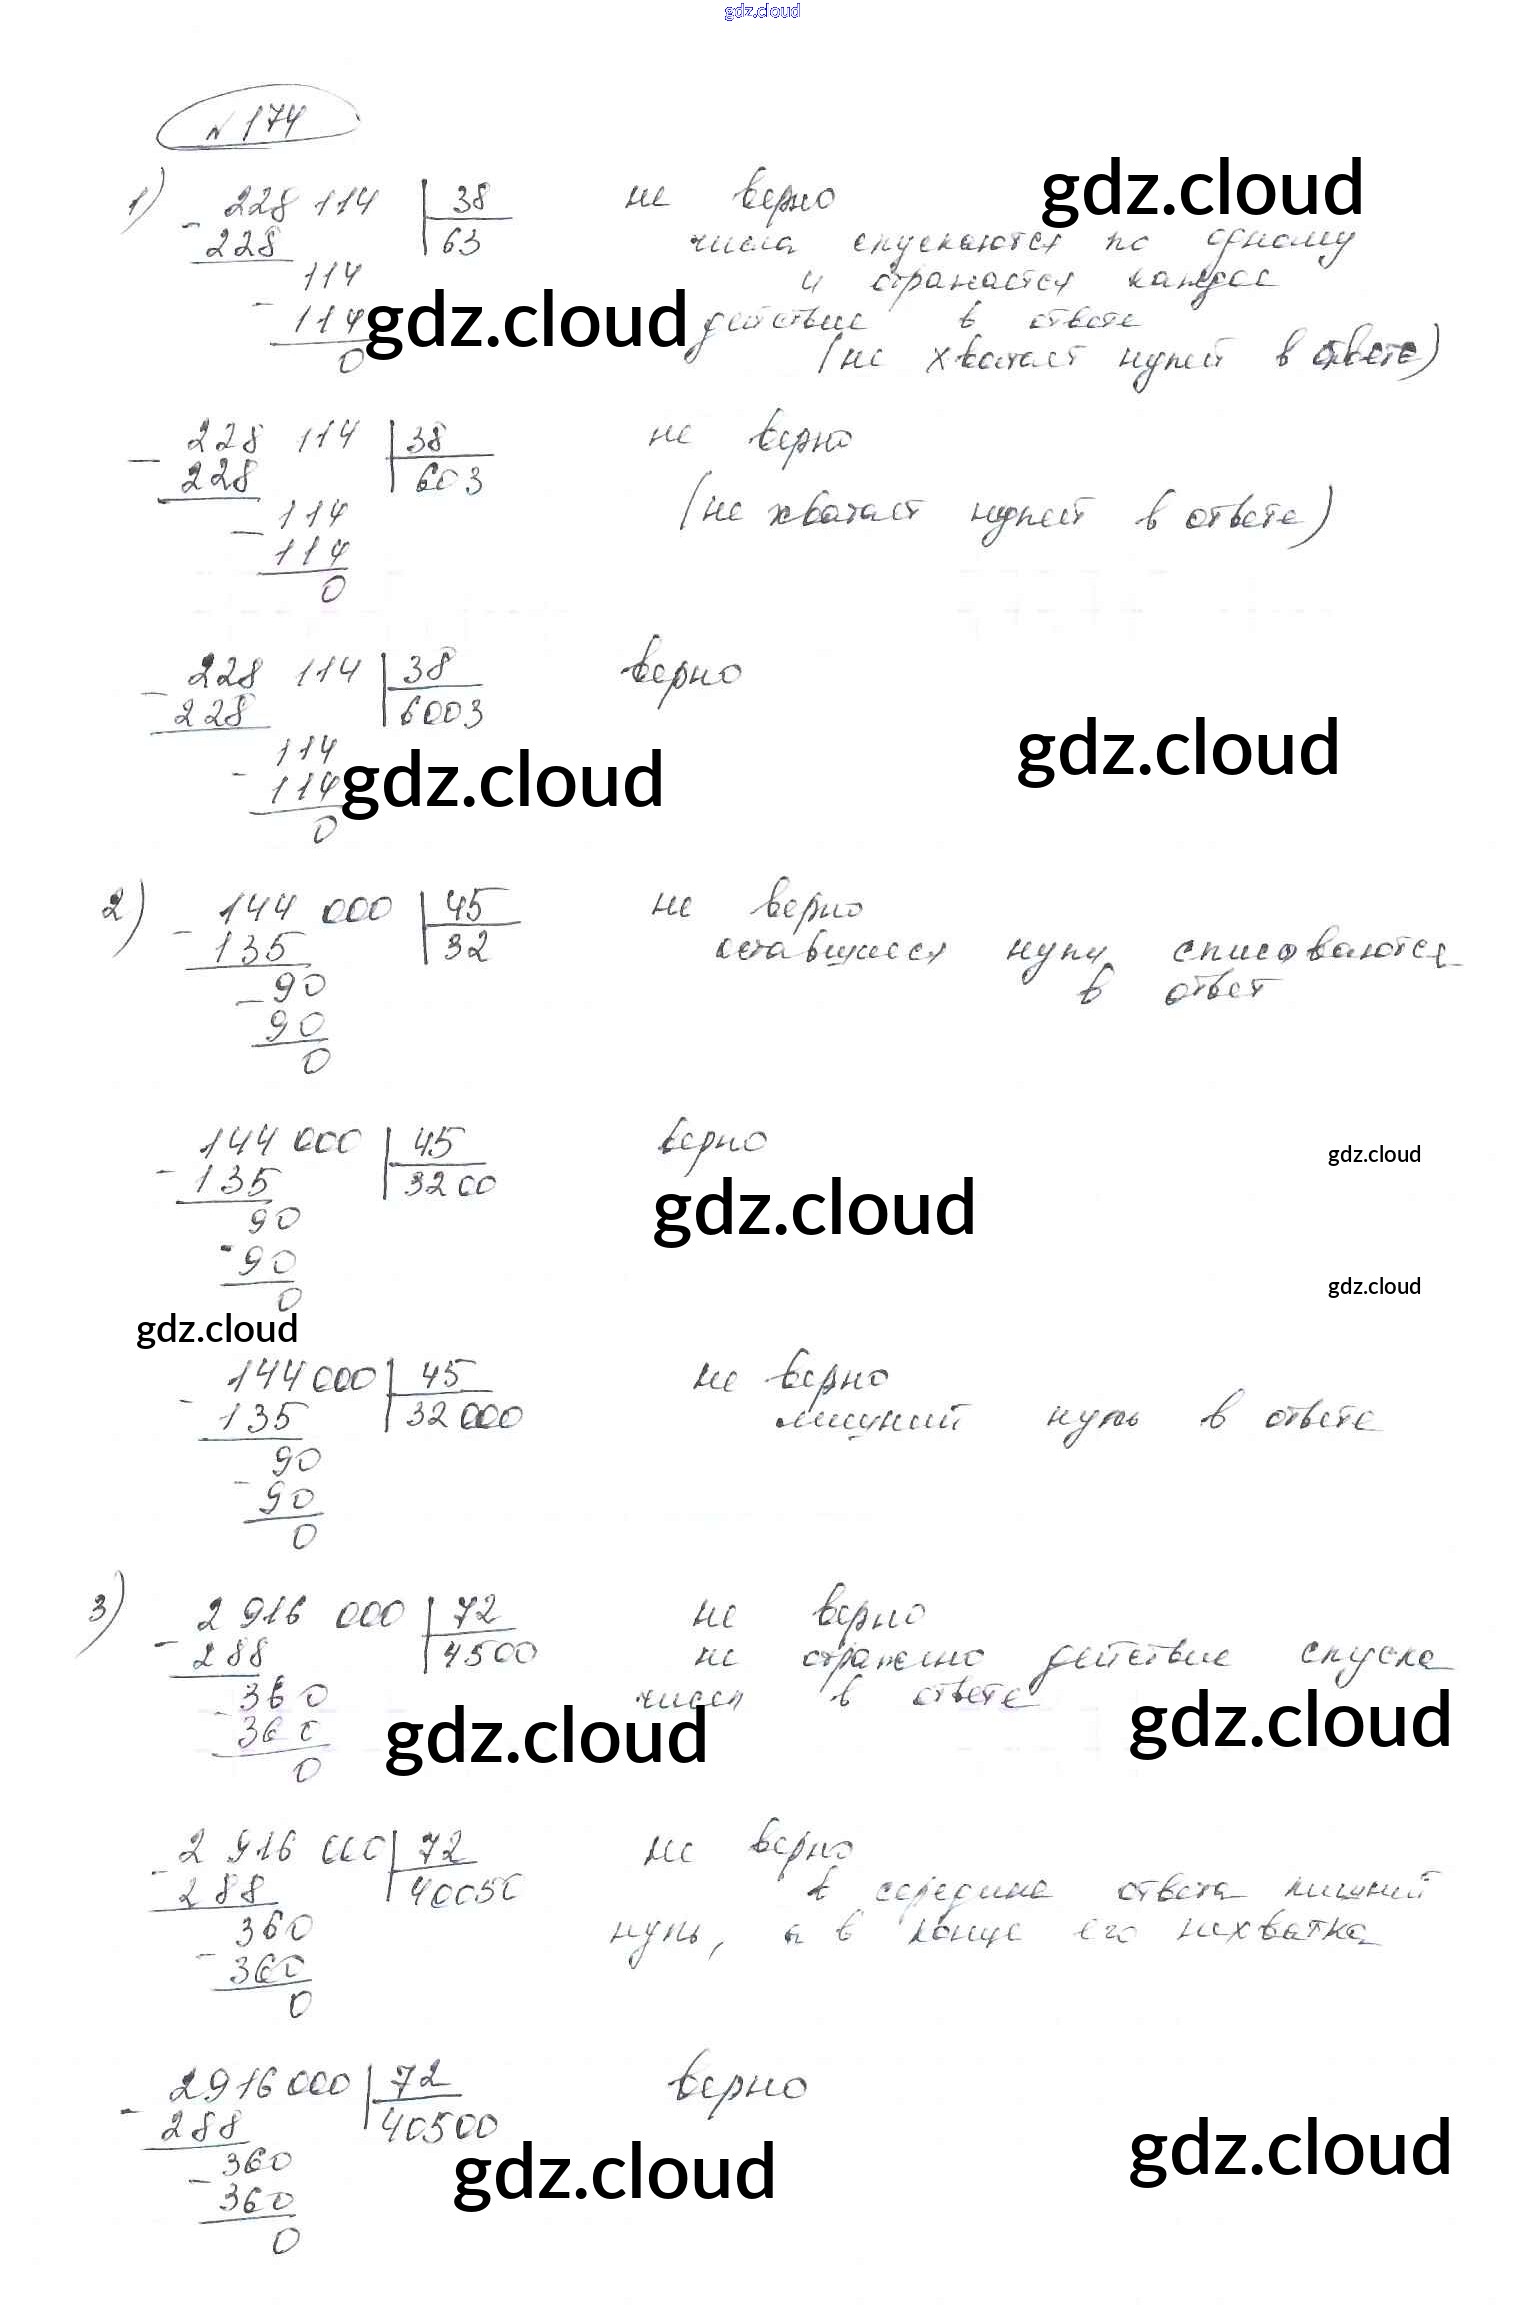 gdz.cloud
№ 174
1) 228 114 | 38 не верно
- 228 | 63 числа спускаются по одному
gdz.cloud
114 и отражается каждое
- 114 действие в ответе
gdz.cloud
0 (не хватает нулей в ответе)
228 114 | 38 не верно
- 228 | 603
114 (не хватает нулей в ответе)
- 114
0
228 114 | 38 верно
- 228 | 6003
114
gdz.cloud
- 114
gdz.cloud
0
2) 144 000 | 45 не верно
- 135 | 32 оставшиеся нули списоваются
90 в ответ
- 90
0
144 000 | 45 верно
- 135 | 3200
gdz.cloud
90
gdz.cloud
- 90
gdz.cloud
0
gdz.cloud
144 000 | 45 не верно
- 135 | 32 000 лишний нуль в ответе
90
- 90
0
3) 2 916 000 | 72 не верно
- 288 | 4500 не отражено действие спуска
360 чисел в ответе
- 360
gdz.cloud
gdz.cloud
0
2 916 000 | 72 не верно
- 288 | 40050 в середине ответа лишний
360 нуль, а в конце его нехватка
- 360
0
2916 000 | 72 верно
- 288 | 40500
360
gdz.cloud
gdz.cloud
- 360
0